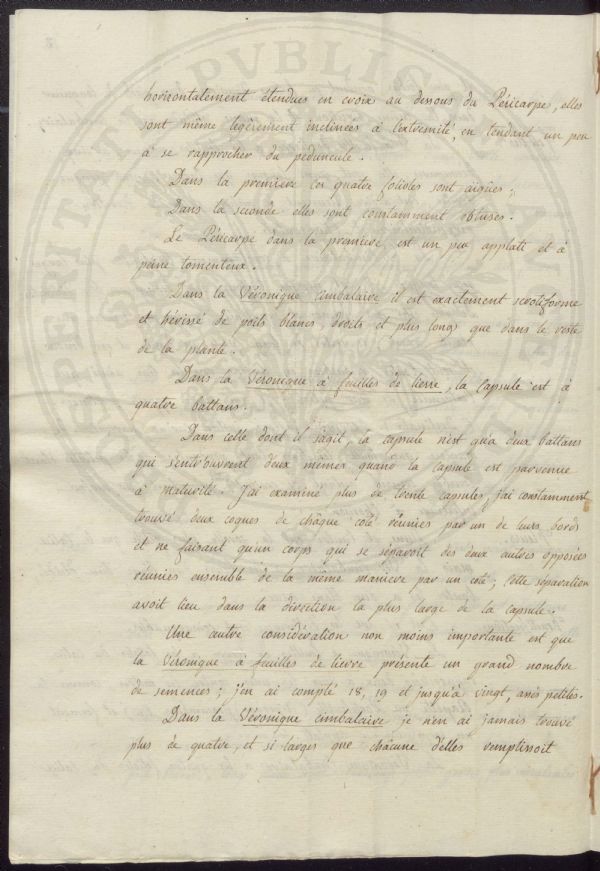 horizontalement étendues en croix au dessous du Péricarpe, elles
sont même legèrement inclinées à l'extremité, en tendant un peu
à se rapprocher du peduncule.
Dans la premiere les quatre folioles sont aigües;
Dans la seconde elles sont constamment obtuses.
Le Péricarpe dans la premiere est un peu applati et à
peine tomenteux.
Dans la Véronique cimbalaire il est exactement scrotiforme
et hérissé de poils blancs, droits et plus longs que dans le reste
de la plante.
Dans la Véronique à feuilles de lierre, la Capsule est à
quatre battans.
Dans celle dont il s'agit, la capsule n'est qu'à deux battans
qui s'entr'ouvrent d'eux mêmes quand la capsule est parvenue
à maturité. J'ai examiné plus de trente capsules, j'ai constamment
trouvé deux coques de châque coté réunies par un de leurs bords
et ne faisant qu'un corps qui se séparoit des deux autres opposées
réunies ensemble de la même maniere par un coté; cette séparation
avoit lieu dans la direction la plus large de la capsule.
Une autre considération non moins importante est que
la Véronique à feuilles de lierre présente un grand nombre
de semences; j'en ai compté 18, 19 et jusqu'à vingt, assés petites.
Dans la Véronique cimbalaire je n'en ai jamais trouvé
plus de quatre, et si larges que châcune d'elles remplissoit